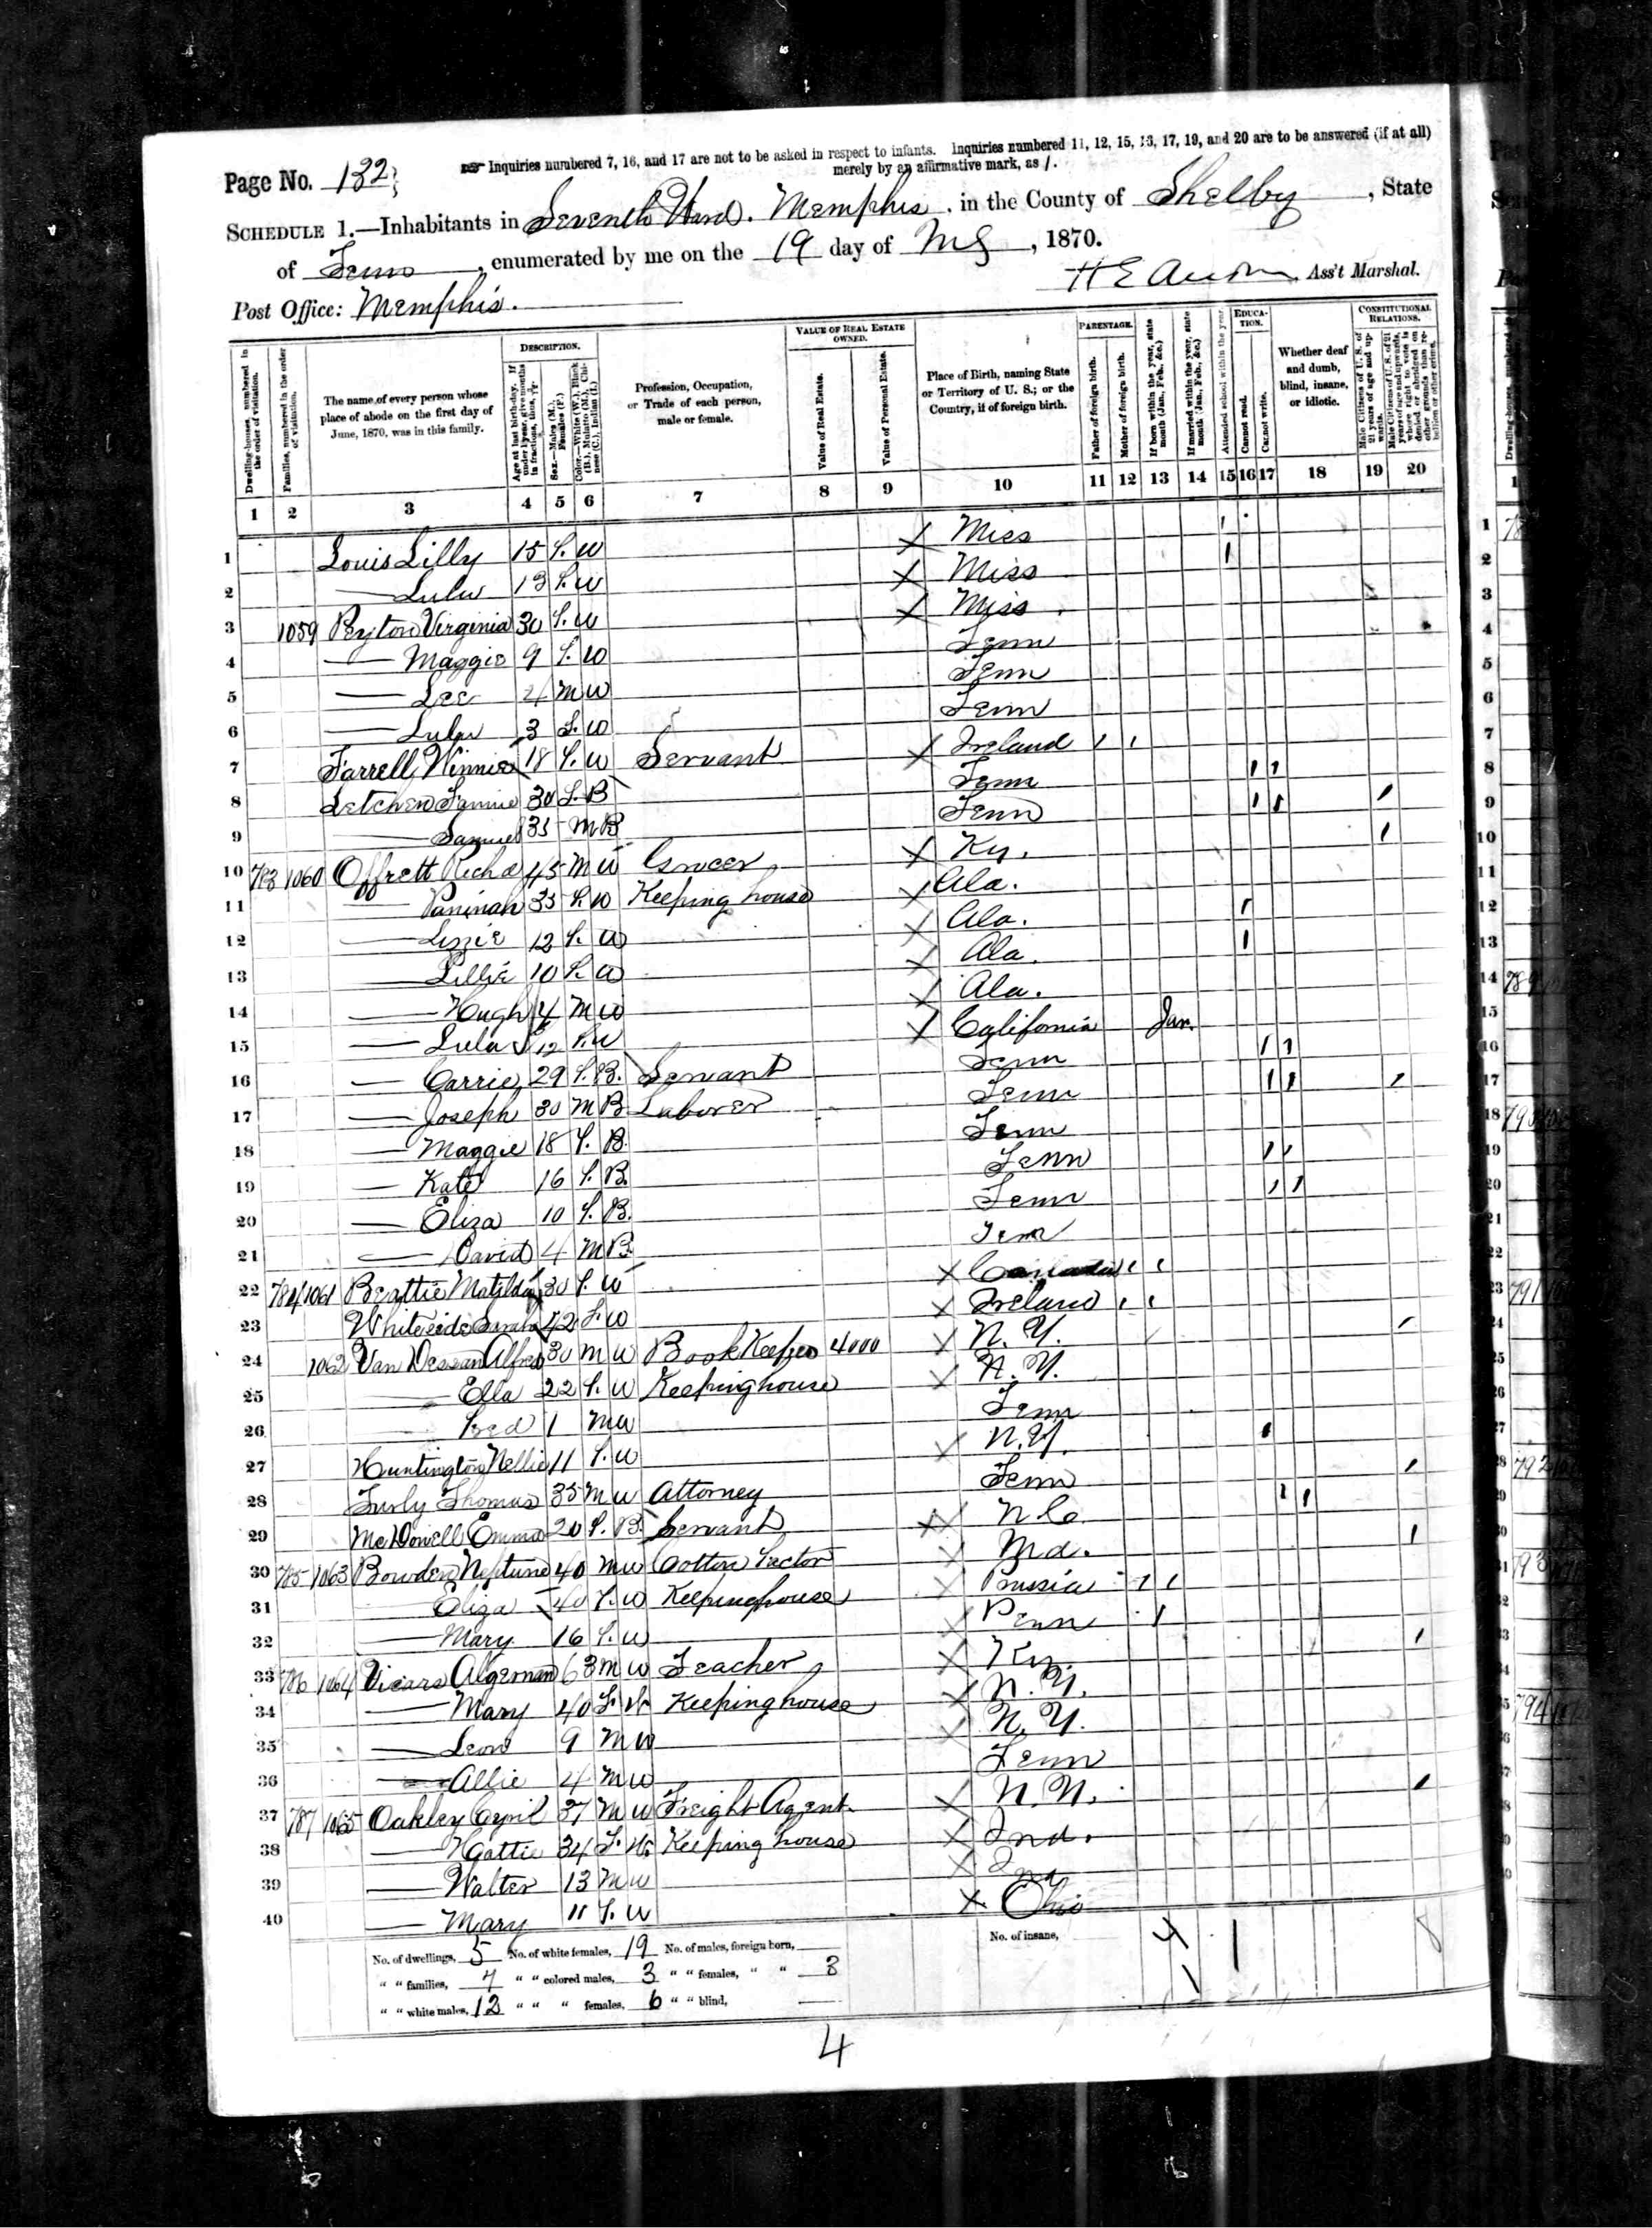 Page No. 132
Inquiries numbered 7, 16, and 17 are not to be asked in respect to infants. Inquiries numbered 11, 12, 15, 16, 17, 19, and 20 are to be answered (if at all)
merely by an affirmative mark, as /.
SCHEDULE 1.—Inhabitants in Seventh Ward. Memphis, in the County of Shelby, State
of Tenn, enumerated by me on the 19 day of , 1870.
Post Office: Memphis.
H E Ass't Marshal.
DESCRIPTION.
VALUE OF REAL ESTATE OWNED.
PARENTAGE.
EDUCATION.
CONSTITUTIONAL RELATIONS.
Dwelling-houses, numbered in the order of visitation.
Families, numbered in the order of visitation.
The name of every person whose place of abode on the first day of June, 1870, was in this family.
Age at last birth-day. If under 1 year, give months in fractions, thus, 3/12.
Sex.—Males (M.), Females (F.)
Color.—White (W.), Black (B.), Mulatto (M.), Chinese (C.), Indian (I.)
Profession, Occupation, or Trade of each person, male or female.
Value of Real Estate.
Value of Personal Estate.
Place of Birth, naming State or Territory of U. S.; or the Country, if of foreign birth.
Father of foreign birth.
Mother of foreign birth.
If born within the year, state month (Jan., Feb., &c.)
If married within the year, state month (Jan., Feb., &c.)
Attended school within the year.
Cannot read.
Cannot write.
Whether deaf and dumb, blind, insane, or idiotic.
Male Citizens of U. S. of 21 years of age and upwards.
Male Citizens of U. S. of 21 years of age and upwards, whose right to vote is denied or abridged on other grounds than rebellion or other crime.
1 2 3 4 5 6 7 8 9 10 11 12 13 14 15 16 17 18 19 20
1 Louis Lilly 15 F. W X Miss /
2 — Lulu 13 F. W X Miss /
3 1059 Peyton Virginia 30 F. W X Miss
4 — Maggie 9 F. W Tenn
5 — Lee 4 M W Tenn
6 — Lula 3 F. W Tenn
7 Farrell Winnie 18 F. W Servant X Ireland / /
8 Fannie 30 F. B Tenn / /
9 — Samuel 35 M B Tenn / / /
10 783 1060 Offrett Richd 45 M W Grocer X Ky. /
11 — 35 F. W Keeping house X Ala.
12 — Lizzie 12 F. W X Ala. /
13 — Lillie 10 F. W X Ala. /
14 — Hugh 4 M W X Ala.
15 — Lula 5/12 F. W X California Jan.
16 — Carrie 29 F. B. Servant Tenn / /
17 — Joseph 30 M B Laborer Tenn / / /
18 — Maggie 18 F. B. Tenn
19 — Kate 16 F. B. Tenn / /
20 — Eliza 10 F. B. Tenn / /
21 — David 4 M B. Tenn
22 784 1061 Beattie Matilda 30 F. W X Canada / /
23 Whiteside Sarah 42 F. W X Ireland / /
24 1062 Van Alfred 30 M W Book Keeper 4000 X N. Y. /
25 — Ella 22 F. W Keeping house X N. Y.
26 — Fred 1 M W Tenn
27 Huntington Nellie 11 F. W X N. Y. /
28 Thomas 35 M W Attorney Tenn /
29 McDowell Emma 20 F. B. Servant X N. C. / /
30 785 1063 Bowden Neptune 40 M W Cotton Factor X Md. /
31 — Eliza 40 F. W Keeping house X Prussia / /
32 — Mary 16 F. W X Penn /
33 786 1064 Vicars Algernon 63 M W Teacher X Ky. /
34 — Mary 40 F. W Keeping house X N. Y.
35 — Leon 9 M W X N. Y.
36 — Allie 4 M W Tenn
37 787 1065 Oakley Cyril 37 M W Freight Agent X N. Y. /
38 — Hattie 34 F. W. Keeping house X Ind.
39 — Walter 13 M W X Ind
40 — Mary 11 F. W X Ohio
No. of dwellings, 5 No. of white females, 19 No. of males, foreign born, No. of insane,
" " families, 7 " " colored males, 3 " " females, " " 3
" " white males, 12 " " " females, 6 " " blind,
4 1 8
1
4